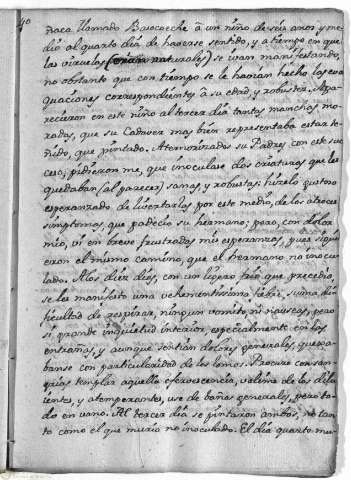 40
zaca llamado Basocoeche à un niño de seis años y me-
dio al quarto dia de haverse sentido, y à tiempo en que
las viruelas naturales) se ivan manifestando,
no obstante que con tiempo se le havian hecho las eva
quaciones correspondientes à su edad y robustez. Apa-
recieron en este niño al tercer dia tantas manchas mo-
radas, que su Cadaver mas bien representaba estar te-
ñido, que pintado. Atemorizados su Padres con este suc
ceso, pidieron me, que inoculase dos criaturas que les
quedaban (al parecer) sanas, y robustas: hizelo gustoso
esperanzado de livertarlas por este medio, de los atroces
simptomas, que padecio su hermano; pero, con dolor
mio, vi en breve frustradas mis esperanzas, pues sigui
eron el mismo camino, que el hermano no inocu-
lado. A los diez dias, con un ligero frio que precedio,
se les manifesto una vehementissima fiebre, suma difi
ficultad de respirar, ningun vomito, ni nauseas, pero
si grande inquietud interior, especialmente en las
entrañas, y aunque sentian dolores generales, quexa-
banse con particularidad de los lomos. Procurè con san-
grias templar aquella efervescencia, valime de los dilu-
entes, y atemperantes, use de baños generales, pero to-
do en vano. Al tercer dia se pintaron ambos, no tan-
to como el que murio no inoculado. El dia quarto mu-